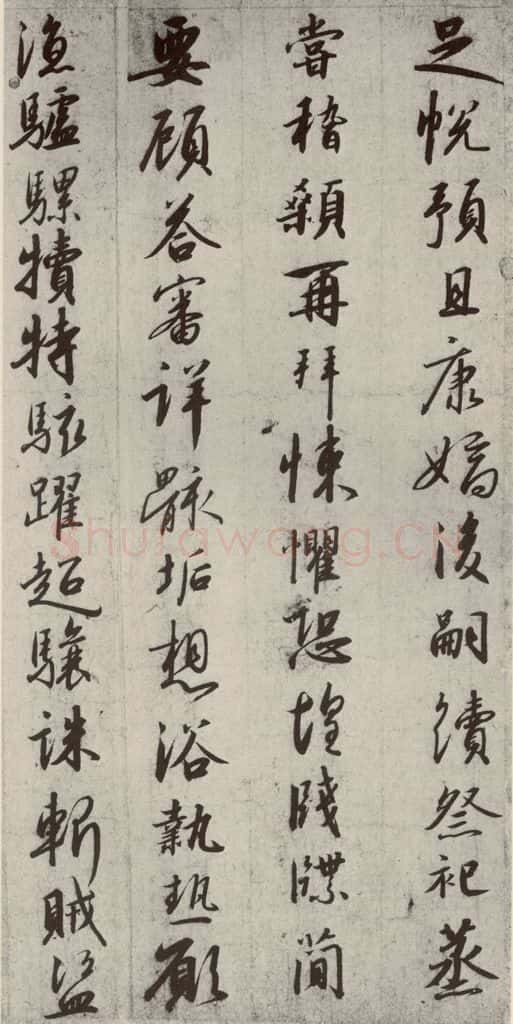 足悅預且康嫡後嗣續祭祀蒸
嘗稽顙再拜悚懼恐惶牋牒簡
要顧荅審詳骸垢想浴執熱願
涼驢騾犢特駭躍超驤誅斬賊盜
shufawang.CN